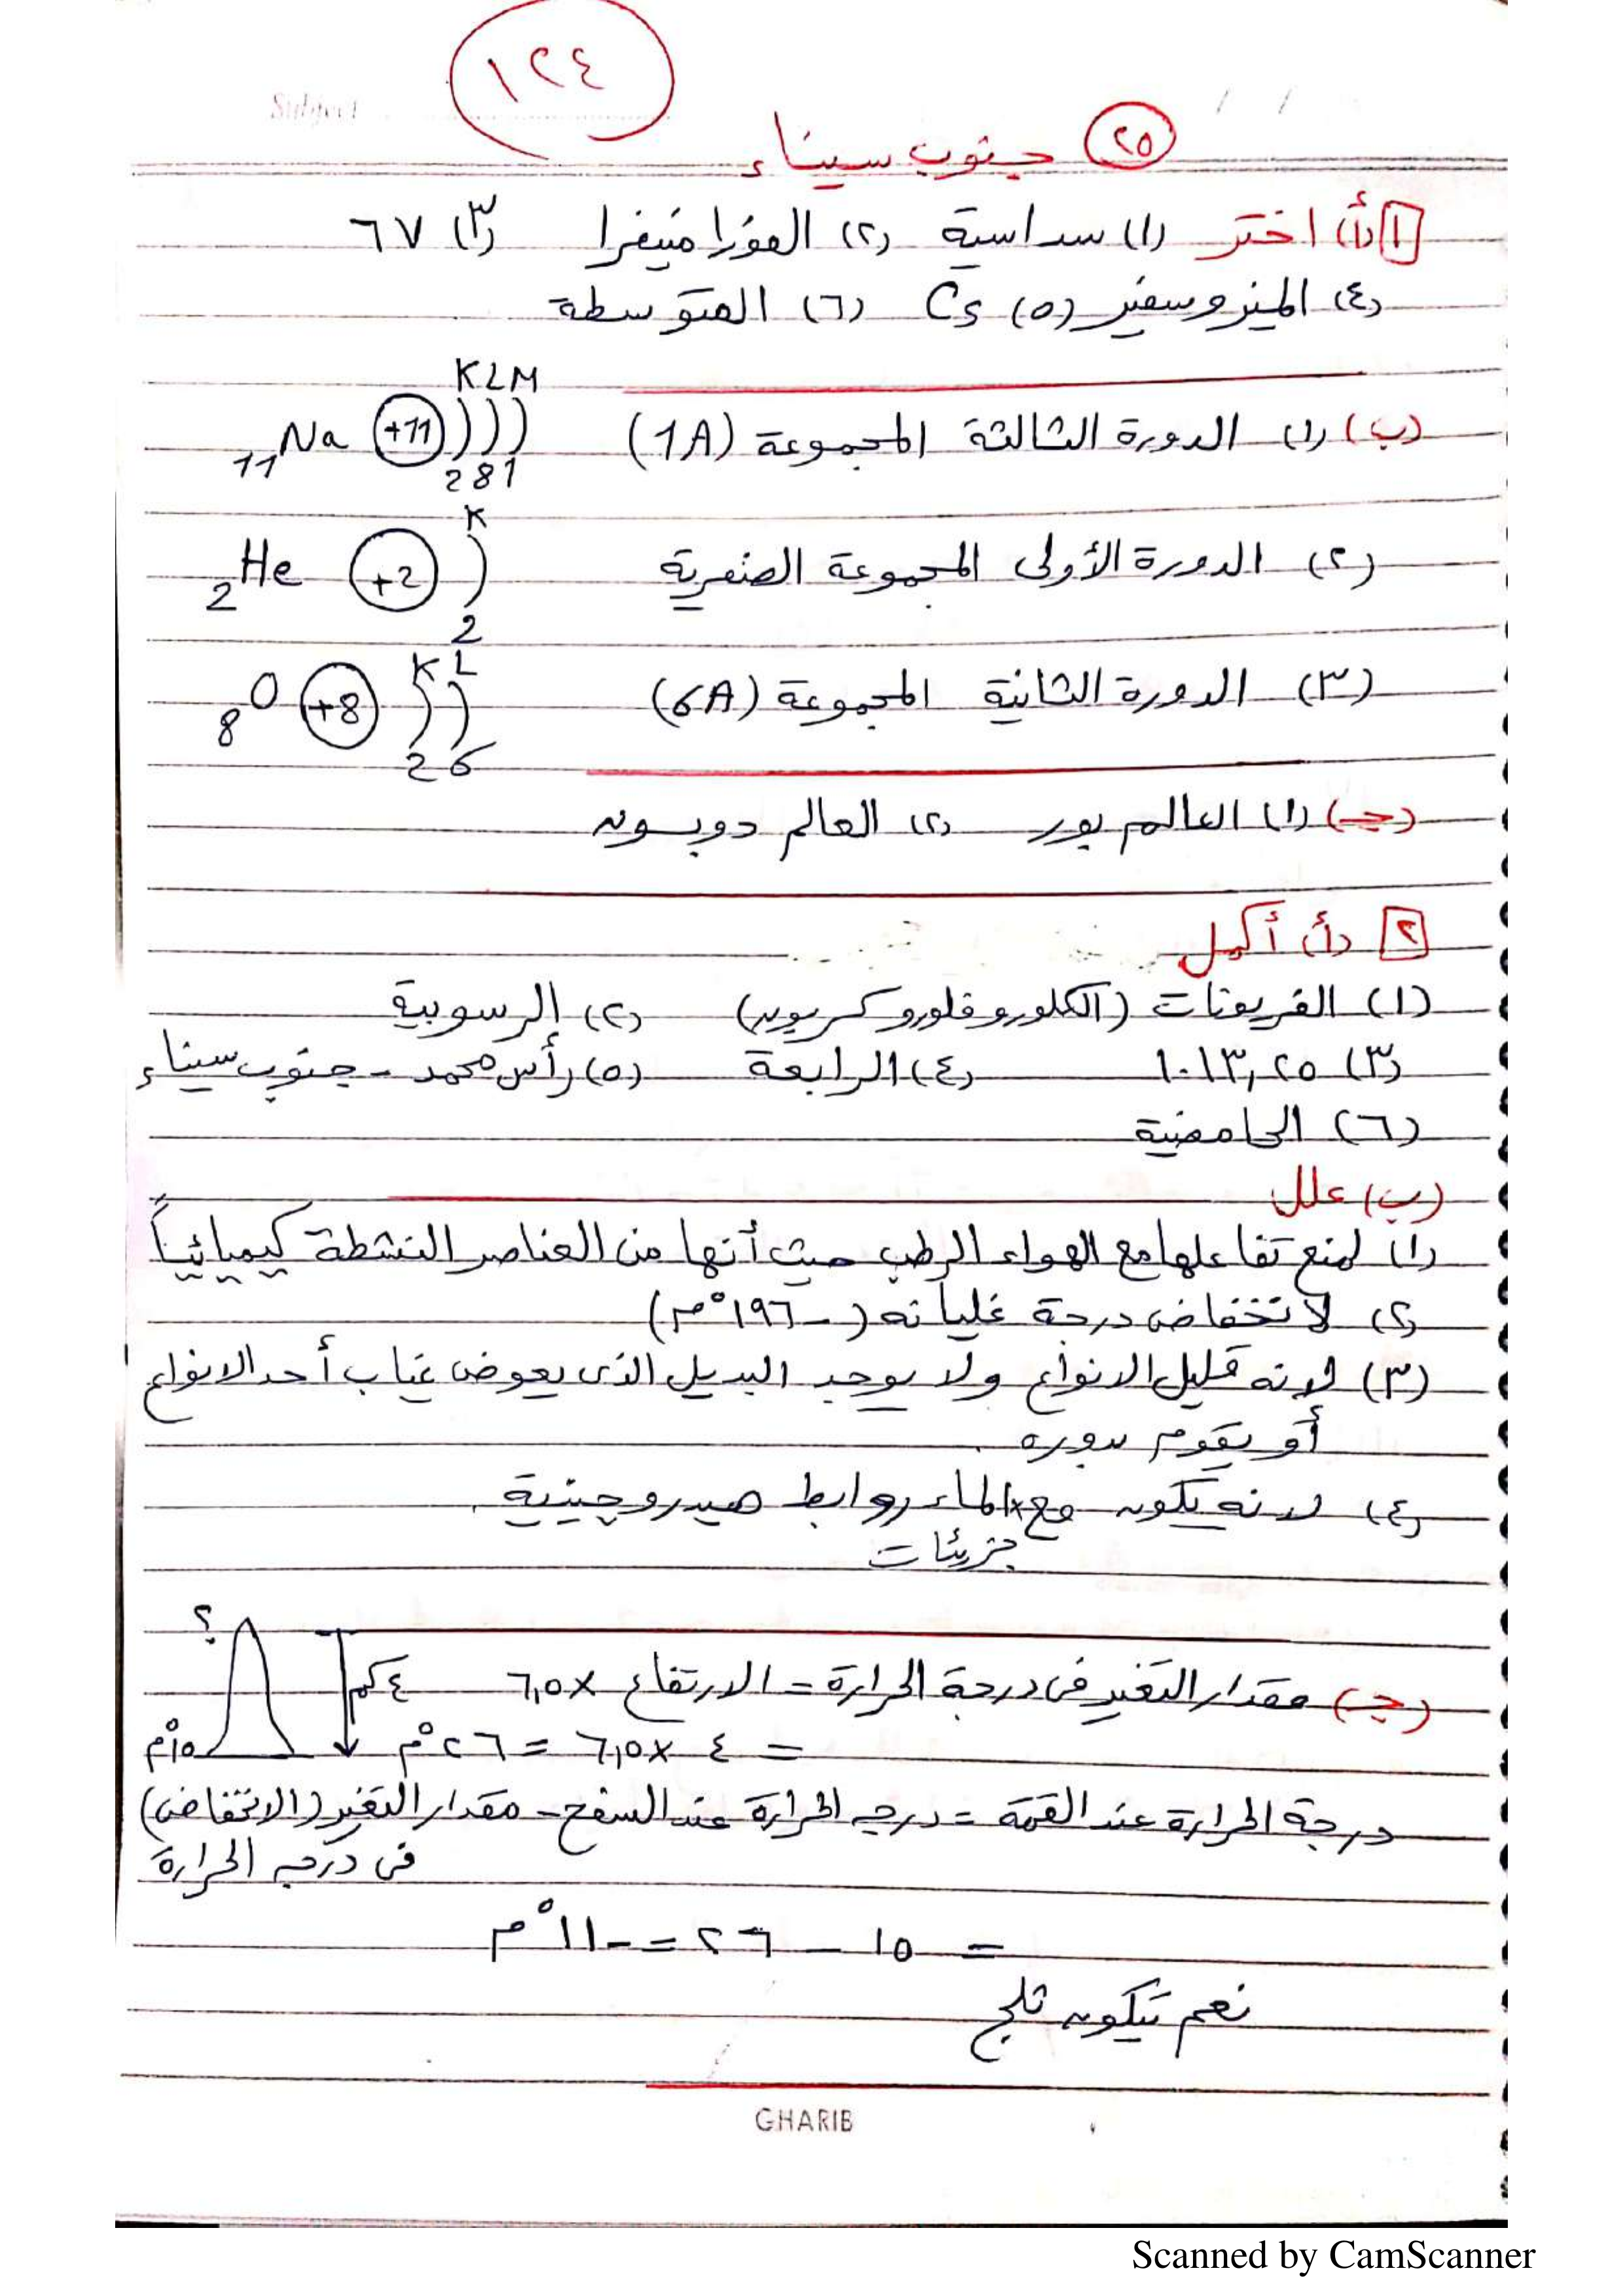 ١٢٤
Subject
٢٥ جنوب سيناء
١ (أ) اختر (١) سداسية (٢) الفورامنيفرا (٣) ٦٧
(٤) الميزوسفير (٥) Cs (٦) المتوسطة
(ب) (١) الدورة الثالثة المجموعة (1A) 11Na +11 K L M 2 8 1
(٢) الدورة الأولى المجموعة الصفرية 2He +2 K 2
(٣) الدورة الثانية المجموعة (6A) 8O +8 K L 2 6
(جـ) (١) العالم بور (٢) العالم دوبسون
٢ (أ) أكمل
(١) الفريونات (الكلوروفلوروكربون) (٢) الرسوبية
(٣) ١٠١٣,٢٥ (٤) الرابعة (٥) رأس محمد - جنوب سيناء
(٦) الحامضية
(ب) علل
(١) لمنع تفاعلها مع الهواء الرطب حيث أنها من العناصر النشطة كيميائياً
(٢) لانخفاض درجة غليانه (-١٩٦°م)
(٣) لانه قليل الانواع ولا يوجد البديل الذى يعوض غياب أحد الانواع
أو يقوم بدوره.
(٤) لانه يكون مع الماء روابط هيدروچينية.
جزيئات
(جـ) مقدار التغير فى درجة الحرارة = الارتفاع × ٦,٥ ٤كم ؟
= ٤ × ٦,٥ = ٢٦°م ١٥°م
درجة الحرارة عند القمة = درجة الحرارة عند السفح - مقدار التغير (الانخفاض)
فى درجة الحرارة
= ١٥ - ٢٦ = -١١°م
نعم يتكون ثلج
GHARIB
Scanned by CamScanner